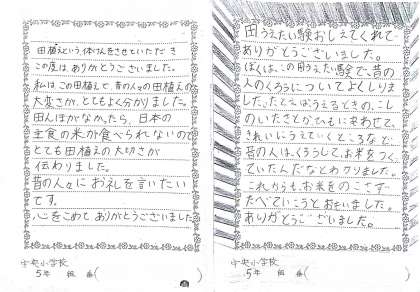 田植えという体けんをさせていただき
この度は、ありがとうございました。
私は、この田植えで、昔の人々の田植えの
大変さが、とてもよく分かりました。
田んぼがなかったら、日本の
主食の米が食べられないので
とても田植の大切さが
伝わりました。
昔の人々にお礼を言いたい
です。
心をこめて ありがとうございました
中央小学校
5年 組 番( )
田うえたい験おしえてくれて
ありがとうございました。
ぼくは、この田うえたい験で、昔の
人のくろうについてよくしりま
した。たとえばうえるときの、こし
のいたさとかひもにあわせて、
きれいにうえていくところなど
昔の人は、くろうして、お米をつく
ていたんだなとわかりました。
これからも、お米をのこさず
たべていこうとおもいました。
ありがとうございました。
中央小学校
5年 組 番( )